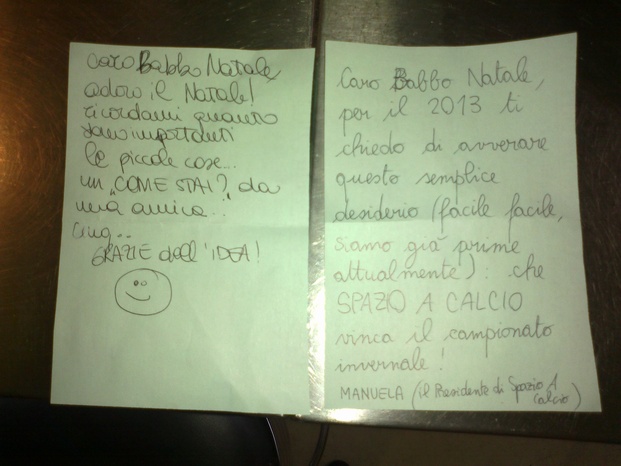 caro Babbo Natale,
adoro il Natale!
ricordami quanto
sono importanti
le piccole cose...
un "COME STAI? da
una amica..
GRAZIE dell'IDEA!
Caro Babbo Natale,
per il 2013 ti
chiedo di avverare
questo semplice
desiderio (facile facile,
siamo già prime
attualmente): che
SPAZIO A CALCIO
vinca il campionato
invernale!
MANUELA (il Presidente di Spazio A
Calcio)